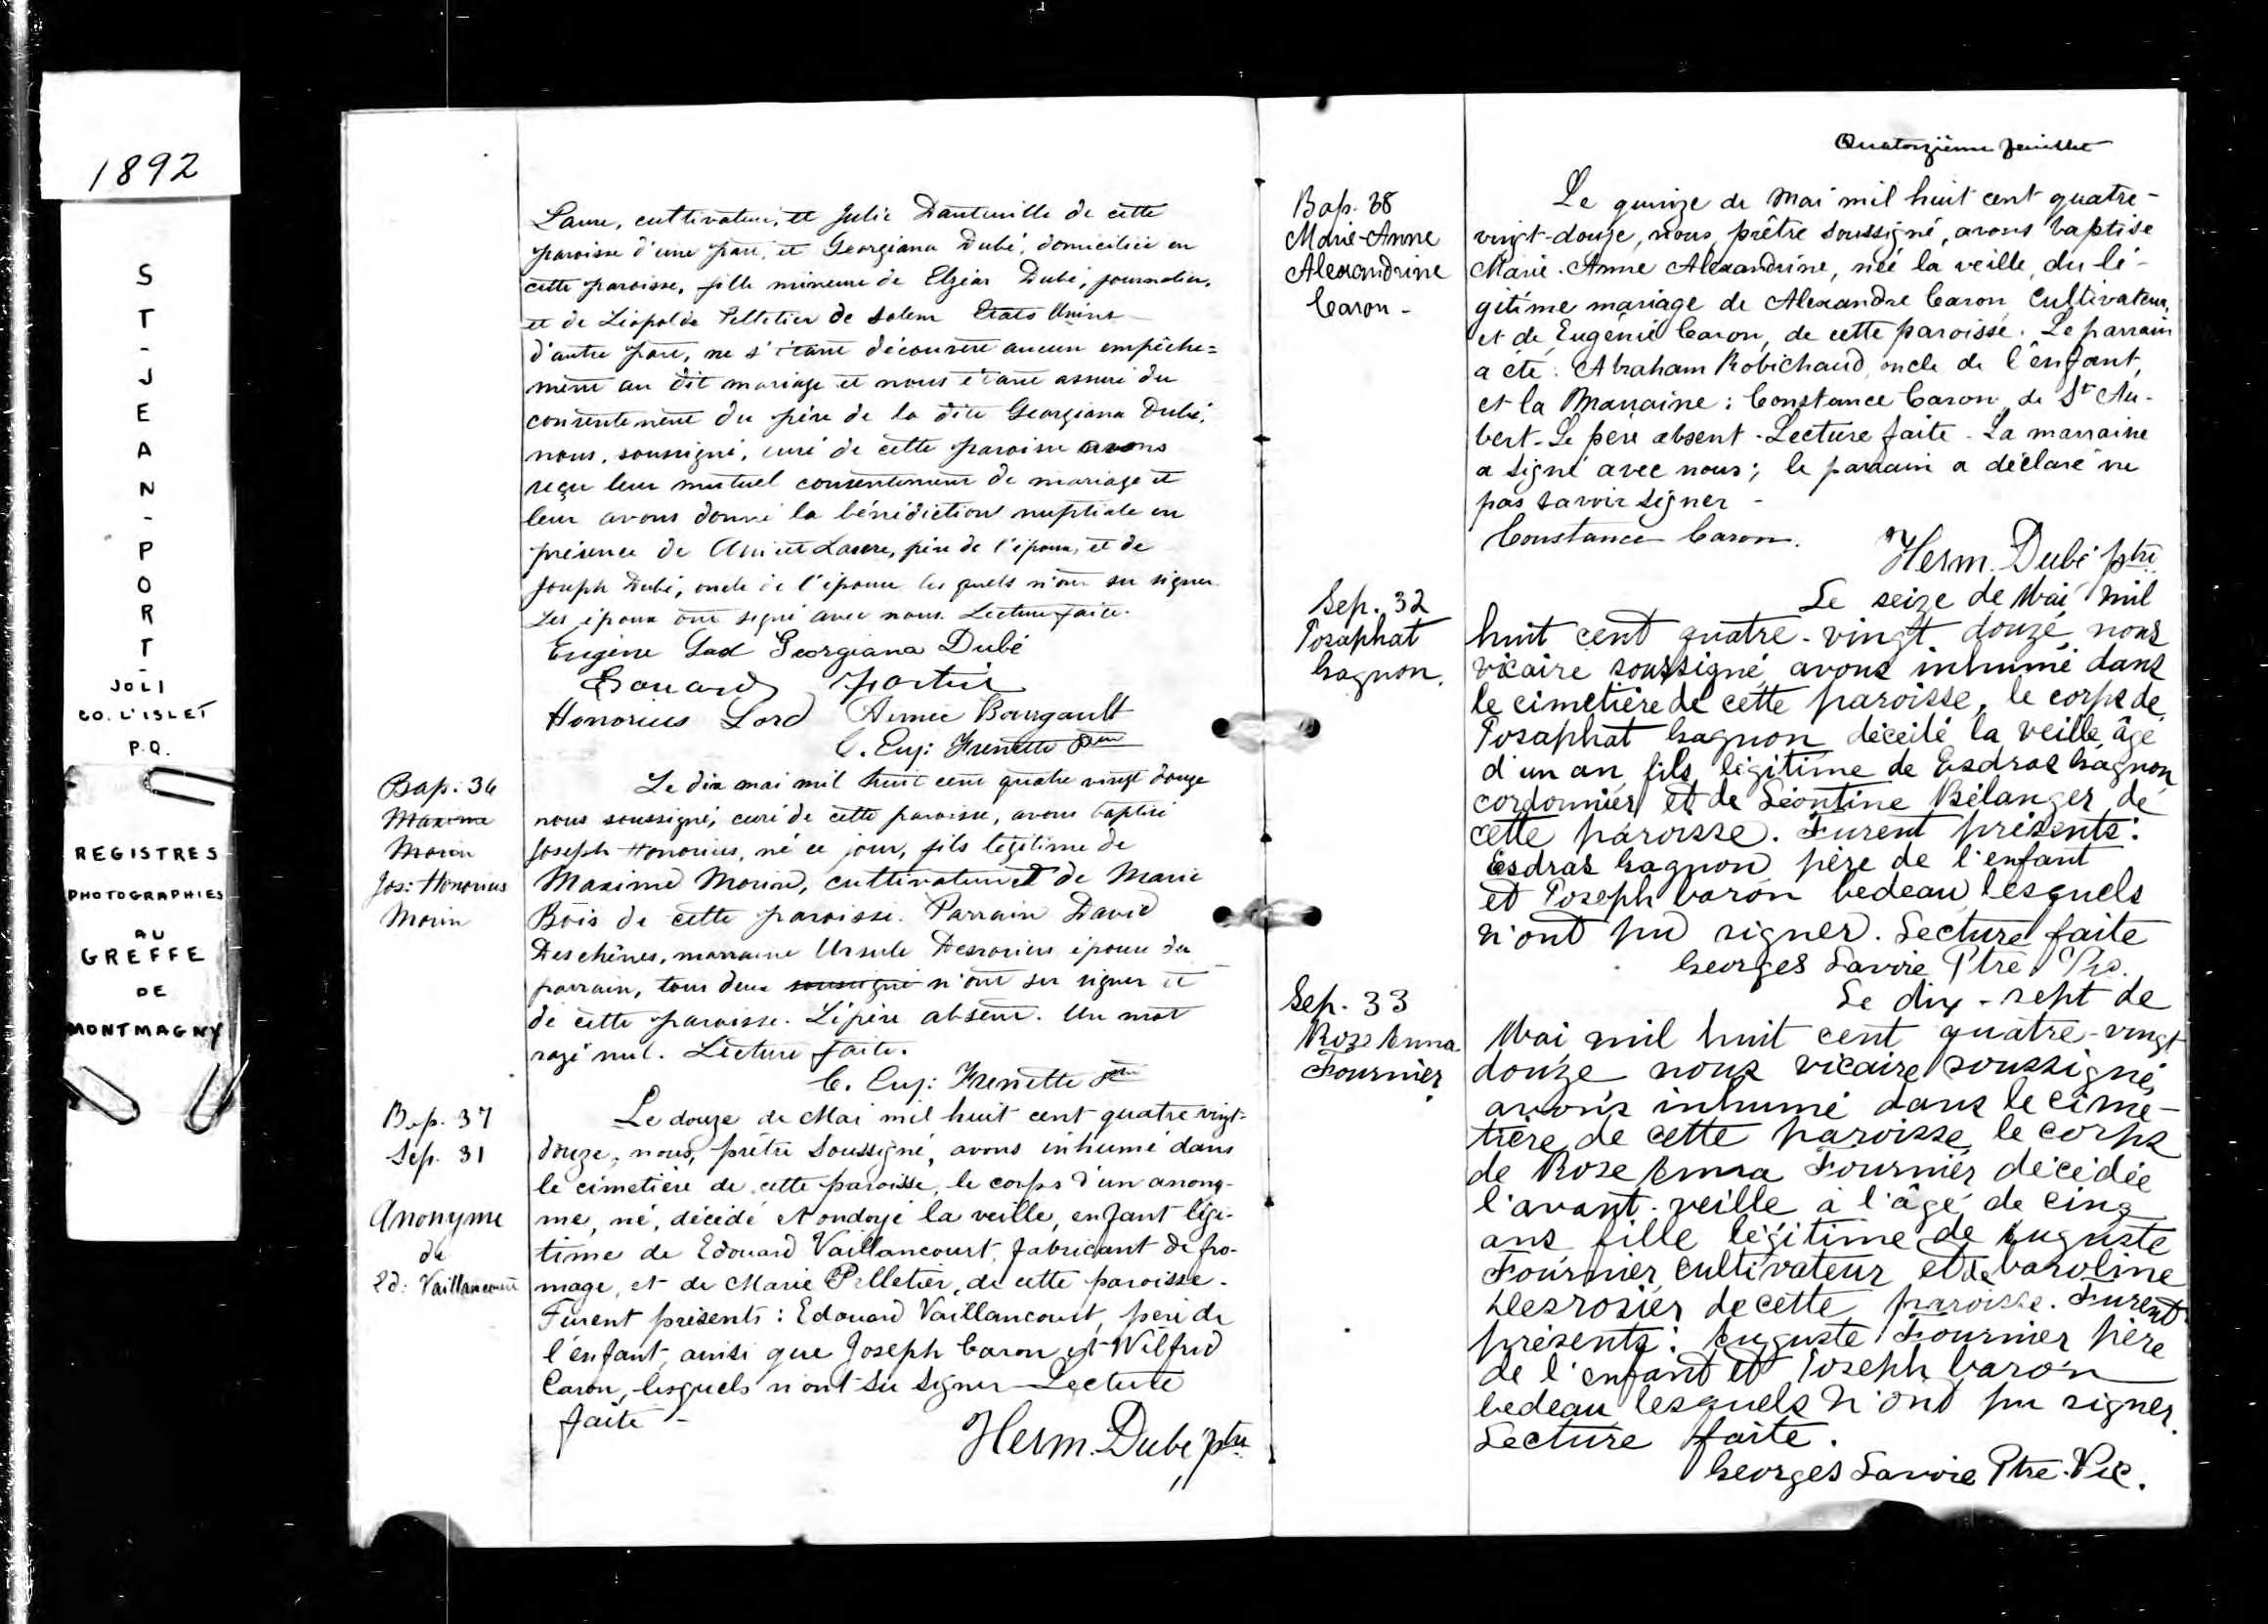 1892
ST-JEAN-PORT-
JOLI
CO. L'ISLET
P.Q.
REGISTRES
PHOTOGRAPHIES
AU
GREFFE
DE
MONTMAGNY
cultivateur, et Julie Dauteuille de cette
paroisse d'une part, et Georgiana Dubé, domiciliée en
cette paroisse, fille mineure de Elzéar Dubé, journalier,
et de Léopolde Pelletier de Salem Etats Unins
d'autre part, ne s'étant découvert aucun empêche=
ment au dit mariage et nous étant assuré du
consentement du père de la dite Georgiana Dubé,
nous, soussigné, curé de cette paroisse avons
reçu leur mutuel consentement de mariage et
leur avons donné la bénédiction nuptiale en
présence de père de l'époux, et de
Joseph Dubé, oncle de l'épouse les quels n'ont su signer
Les époux ont signé avec nous. Lecture faite.
Eugène Georgiana Dubé
Honorius Lord Aimée Bourgault
C. Eug: Frenette Ptre
Bap: 36
Maxime
Morin
Jos: Honorius
Morin
Le dix mai mil huit cent quatre vingt douze
nous soussigné, curé de cette paroisse, avons baptisé
Joseph Honorius, né ce jour, fils légitime de
Maxime Morin, cultivateur et de Marie
Bois de cette paroisse. Parrain David
Deschênes, marraine Ursule Desrosiers épouse du
parrain, tous deux soussigné n'ont su signer et
de cette paroisse. Le père absent. Un mot
rayé nul. Lecture faite.
C. Eug: Frenette Ptre
Bap. 37
Sep. 31
Anonyme
de
Ed: Vaillancourt
Le douze de Mai mil huit cent quatre vingt-
douze, nous, prêtre soussigné, avons inhumé dans
le cimetière de cette paroisse, le corps d'un anony-
me, né, décédé et ondoyé la veille, enfant légi-
time de Edouard Vaillancourt, fabricant de fro-
mage, et de Marie Pelletier, de cette paroisse.
Furent présents: Edouard Vaillancourt, père de
l'enfant, ainsi que Joseph Caron et Wilfrid
Caron, lesquels n'ont su signer - Lecture
faite -
Herm. Dubé ptre
Quatorzième feuillet
Bap. 38
Marie-Anne
Alexandrine
Caron -
Le quinze de Mai mil huit cent quatre-
vingt-douze, nous, prêtre soussigné, avons baptisé
Marie-Anne Alexandrine, née la veille, du lé-
gitime mariage de Alexandre Caron, Cultivateur,
et de Eugénie Caron, de cette paroisse. Le parrain
a été: Abraham Robichaud, oncle de l'enfant,
et la Marraine: Constance Caron, de St Au-
bert. Le père absent - Lecture faite - La marraine
a signé avec nous; le parrain a déclaré ne
pas savoir signer -
Constance Caron.
Herm. Dubé ptre
Sep. 32
Josaphat
Gagnon.
Le seize de Mai mil
huit cent quatre-vingt douze, nous
vicaire soussigné avons inhumé dans
le cimetière de cette paroisse, le corps de
Josaphat Gagnon décédé la veille âgé
d'un an, fils légitime de Esdras Gagnon
cordonnier et de Léontine Bélanger de
cette paroisse. Furent présents:
Esdras Gagnon père de l'enfant
et Joseph Caron bedeau lesquels
n'ont pu signer. Lecture faite
Georges Lavoie Ptre Vic.
Sep. 33
Rose Anna
Fournier
Le dix-sept de
Mai mil huit cent quatre-vingt
douze nous vicaire soussigné
avons inhumé dans le cime-
tière de cette paroisse le corps
de Rose Anna Fournier décédée
l'avant-veille à l'âge de cinq
ans fille légitime de Auguste
Fournier cultivateur et de Caroline
Desrosier de cette paroisse. Furent
présents: Auguste Fournier père
de l'enfant et Joseph Caron
bedeau lesquels n'ont pu signer.
Lecture faite.
Georges Lavoie Ptre. Vic.